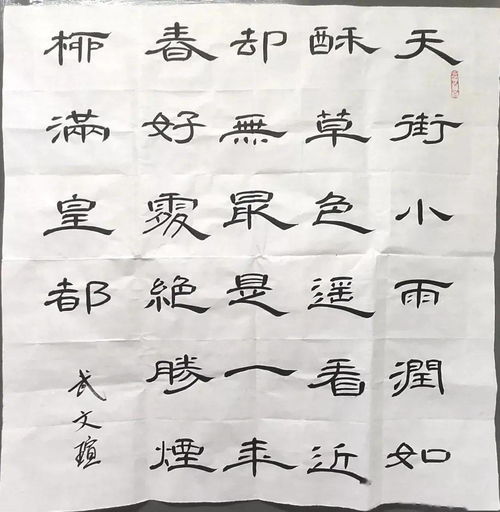 天街小雨潤如
酥草色遥看近
却無最是一年
春好處絶勝煙
柳滿皇都
武文瑄